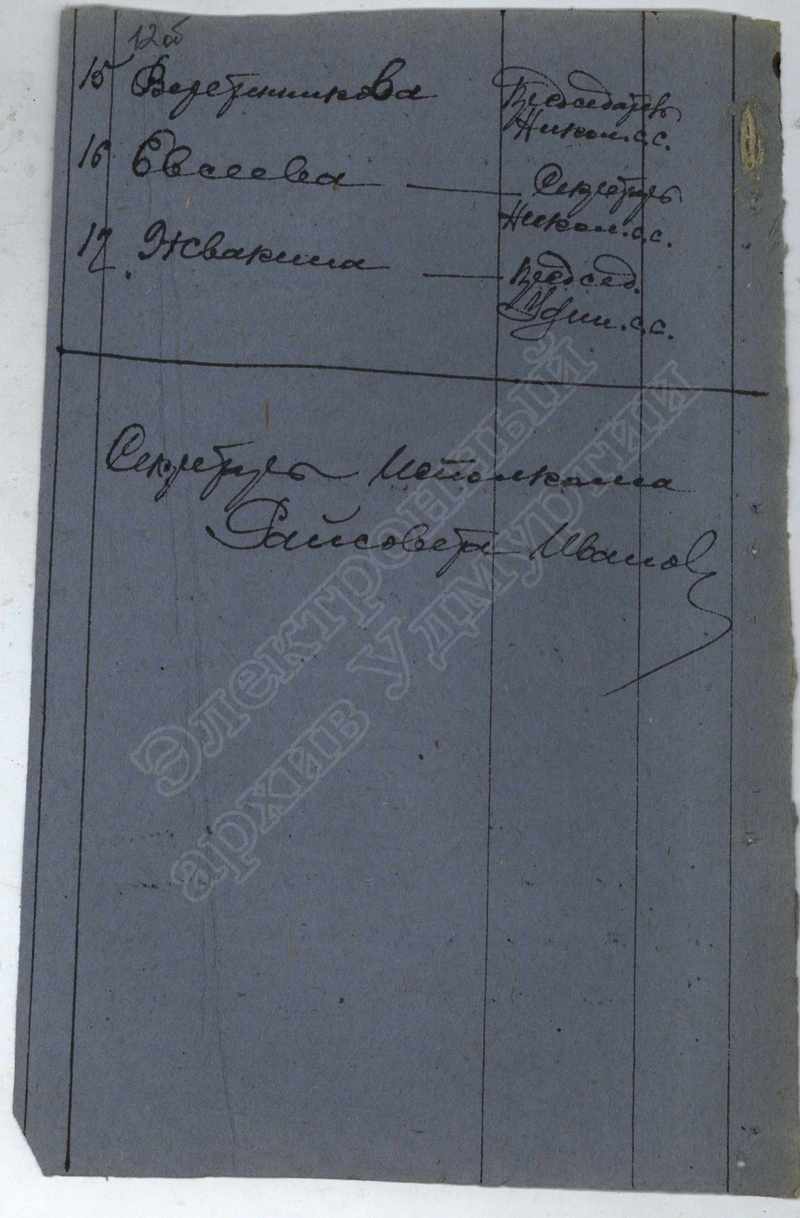 12об
15 Веретенникова Председатель
Никол.с.с.
16 Евсеева — Секретарь
Никол.с.с.
17. Жвакина — Председ.
с.с.
Секретарь Исполкома
Райсовета Иванов
Электронный
архив Удмуртии